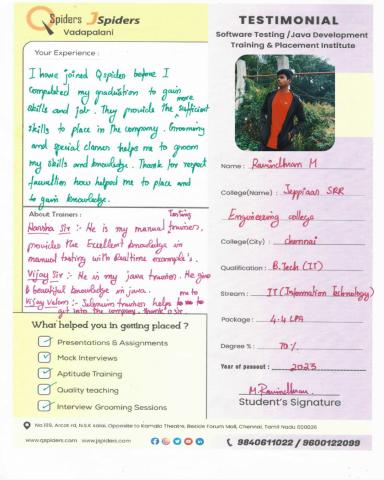 QSpiders JSpiders
Vadapalani
Your Experience :
I have joined Qspiders before I
completed my graduation to gain
more
skills and job. They provide the sufficient
skills to place in the company. Grooming
and special classes helps me to groom
my skills and knowledge. Thank for respect
faculties how helped me to place and
to gain knowledge.
About Trainers :
Testing
Harsha Sir :- He is my manual trainers.
provides the Excellent knowledge in
manual testing with Realtime example's.
Vijay Sir :- He is my java trainer. He give
a beautiful knowledge in java.
me to
Vijay Velan :- Selenium trainer helps
get into the company. Thank u sir.
What helped you in getting placed ?
Presentations & Assignments
Mock Interviews
Aptitude Training
Quality teaching
Interview Grooming Sessions
TESTIMONIAL
Software Testing /Java Development
Training & Placement Institute
Name : Ravindhran M
College(Name) : Jeppiaar SRR
Engineering college
College(City) : chennai
Qualification : B.Tech (IT)
Stream : IT (Information Technology)
Package : 4.4 LPA
Degree % : 70%
Year of passout : 2023
M.Ravindhran
Student's Signature
No.109, Arcot rd, N.S.K salai, Opposite to Kamala Theatre, Beside Forum Mall, Chennai, Tamil Nadu 600026
www.qspiders.com www.jspiders.com
9840611022 / 9600122099